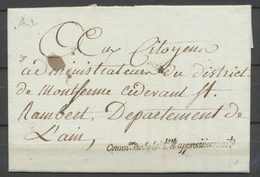 Aux Citoyens
administrateurs du district
de Montferme cidevant St.
Rambert, Departement de
L'ain,
Comm.on des Subs.ces et approvisionnem.ts